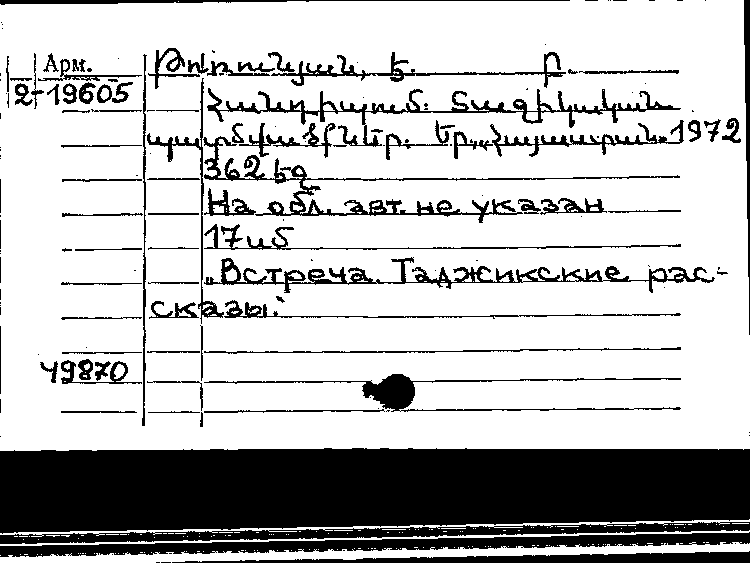 Арм.
2-19605
Թոռունյան, Ե. Բ.
Հանդիպում: Տաջիկական
պատմվածքներ. Եր., „Հայաստան" 1972
362 էջ
На обл. авт. не указан
17սմ
„Встреча. Таджикские рас-
сказы."
49870